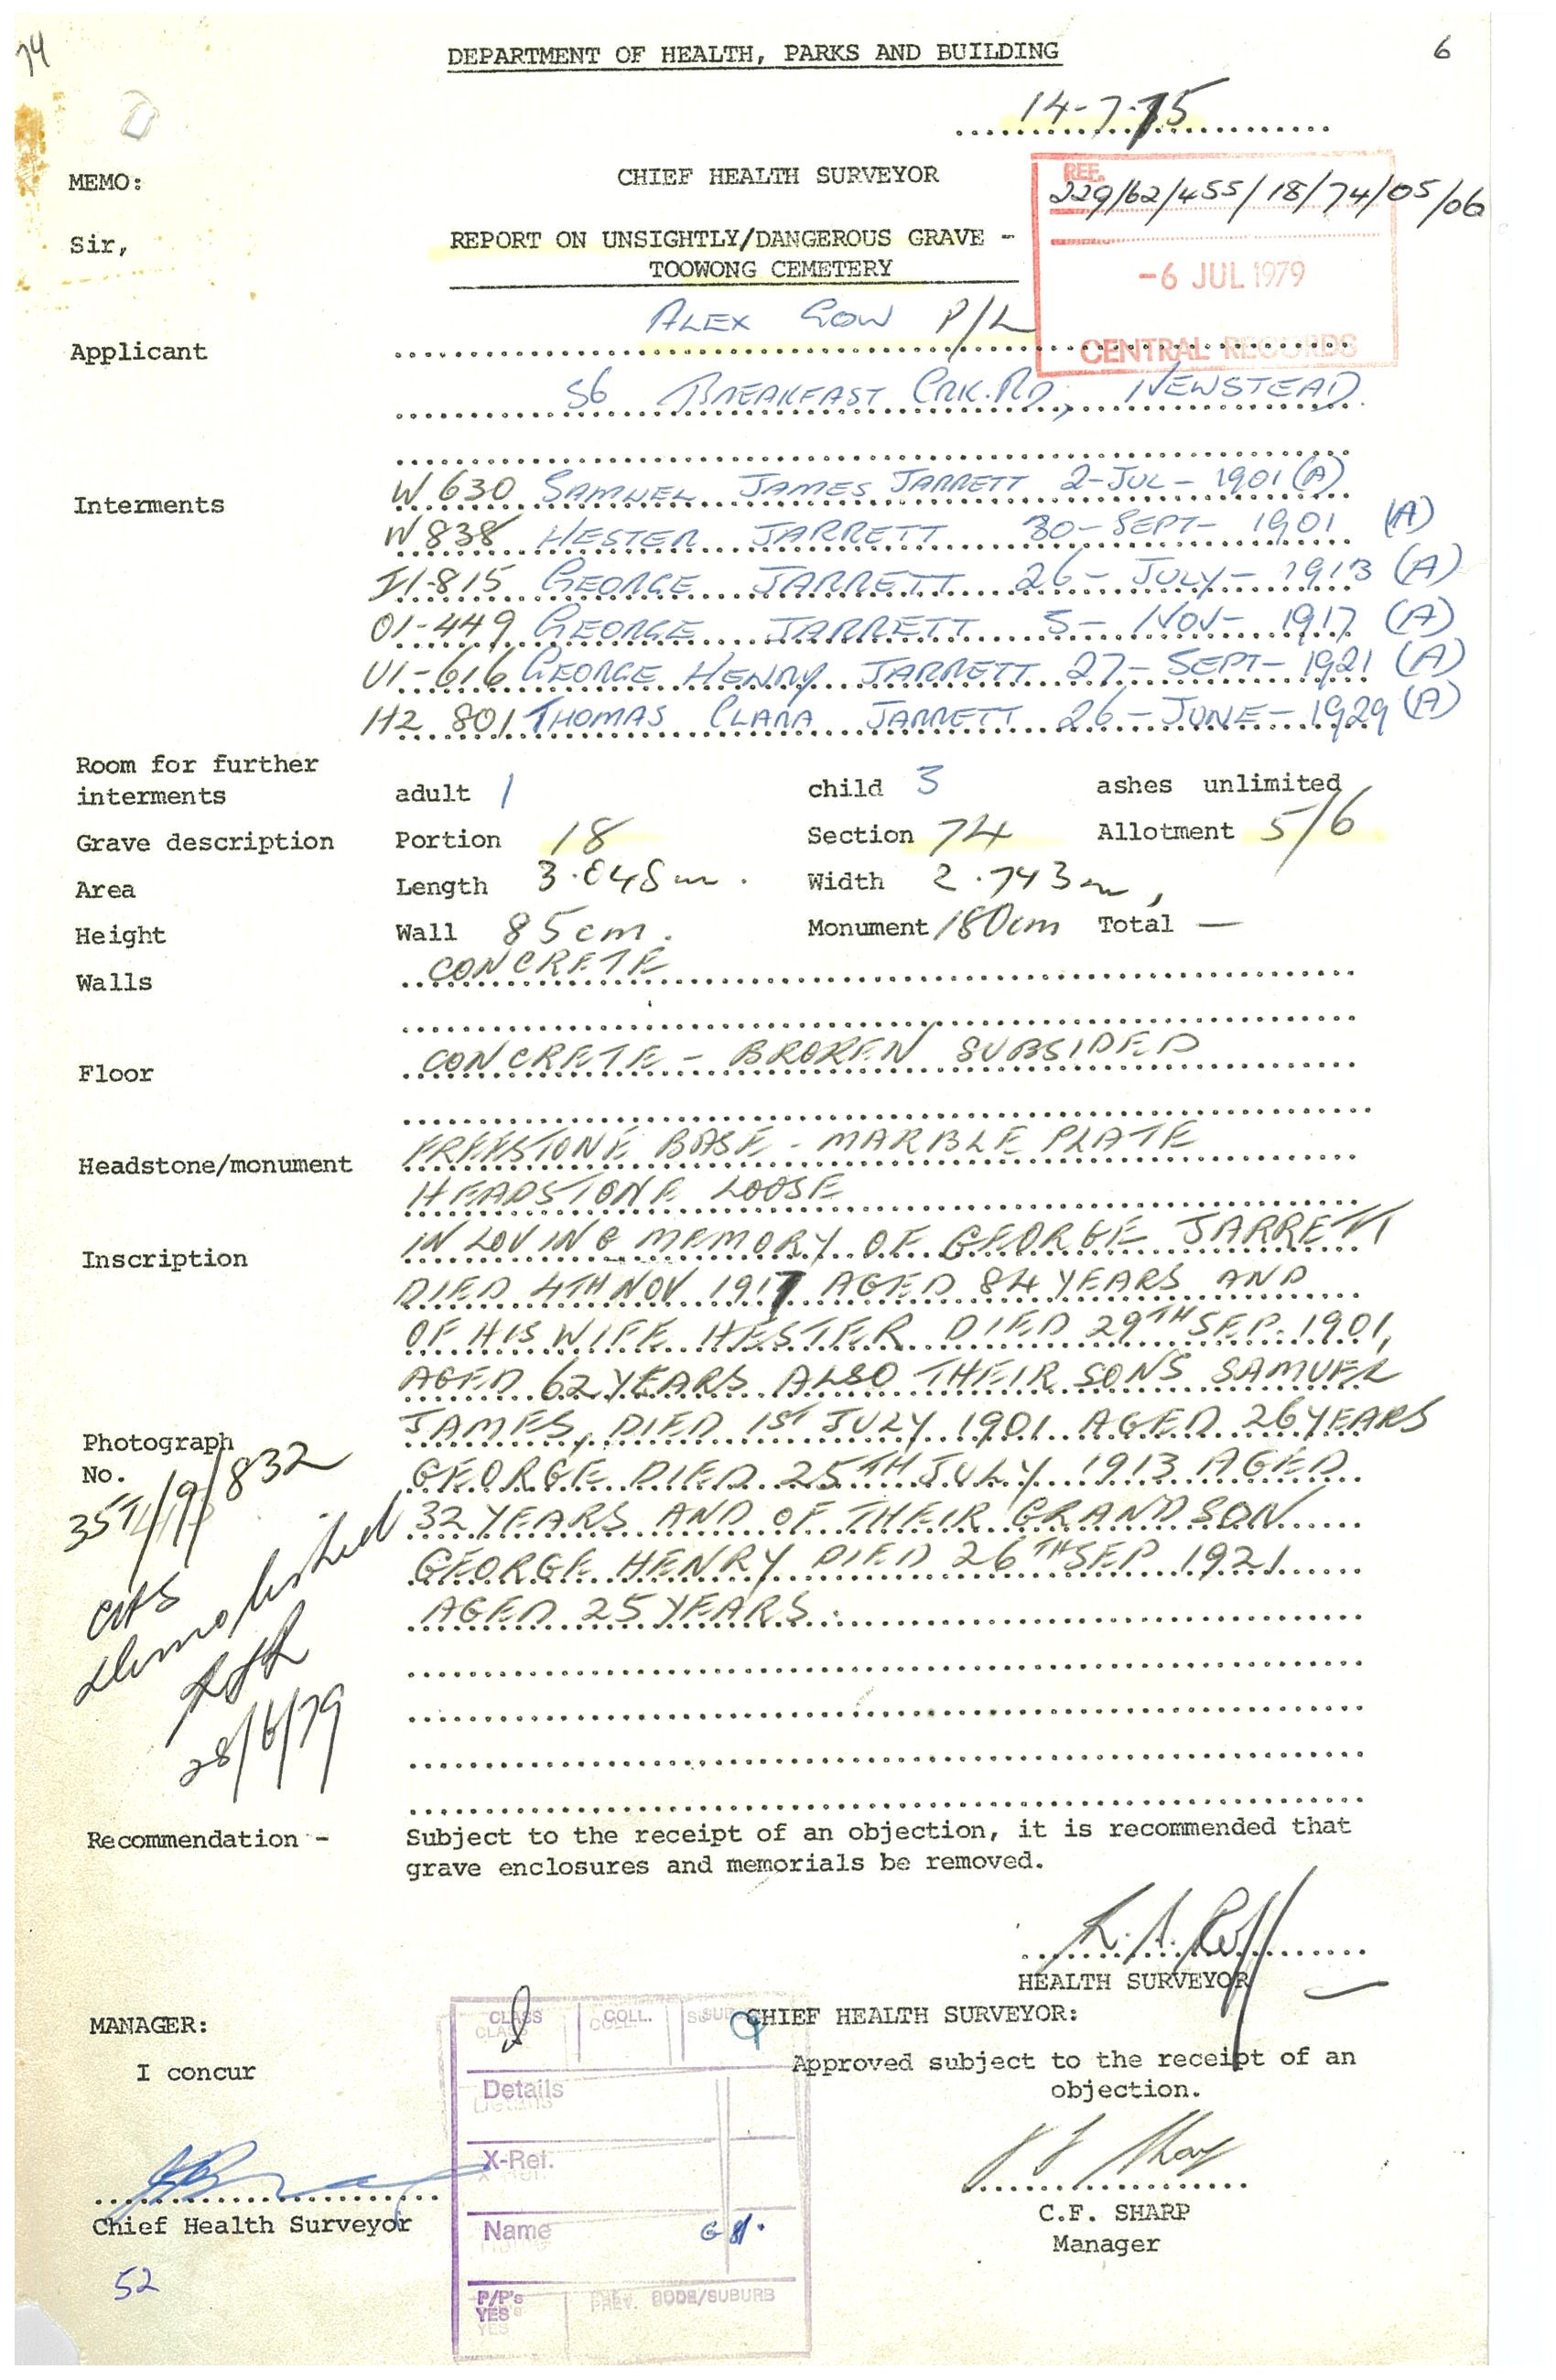 74
DEPARTMENT OF HEALTH, PARKS AND BUILDING
6
14-7-75
MEMO:
CHIEF HEALTH SURVEYOR
REF.
229/62/455/18/74/05/06
Sir,
REPORT ON UNSIGHTLY/DANGEROUS GRAVE -
TOOWONG CEMETERY
-6 JUL 1979
CENTRAL RECORDS
Applicant
ALEX GOW P/L
56 BREAKFAST CRK. RD, NEWSTEAD.
Interments
W 630 SAMUEL JAMES JARRETT 2-JUL-1901 (A)
W 838 HESTER JARRETT 30-SEPT-1901 (A)
I1-815 GEORGE JARRETT 26-JULY-1913 (A)
O1-449 GEORGE JARRETT 5-NOV-1917 (A)
U1-616 GEORGE HENRY JARRETT 27-SEPT-1921 (A)
H2 801 THOMAS CLARA JARRETT 26-JUNE-1929 (A)
Room for further
interments adult 1 child 3 ashes unlimited
Grave description Portion 18 Section 74 Allotment 5/6
Area Length 3.048m. Width 2.743m,
Height Wall 85cm. Monument 180cm Total —
Walls CONCRETE
Floor CONCRETE - BROKEN SUBSIDED
Headstone/monument FREESTONE BASE - MARBLE PLATE
HEADSTONE LOOSE
Inscription IN LOVING MEMORY OF GEORGE JARRETT
DIED 4TH NOV 1917 AGED 84 YEARS AND
OF HIS WIFE HESTER DIED 29TH SEP. 1901,
AGED 62 YEARS ALSO THEIR SONS SAMUEL
JAMES, DIED 1ST JULY 1901 AGED 26 YEARS
GEORGE DIED 25TH JULY 1913 AGED
32 YEARS AND OF THEIR GRANDSON
GEORGE HENRY DIED 26TH SEP 1921
AGED 25 YEARS.
Photograph
No.
35T/19/832
demolished
28/6/79
Recommendation - Subject to the receipt of an objection, it is recommended that
grave enclosures and memorials be removed.
HEALTH SURVEYOR
MANAGER:
I concur
Chief Health Surveyor
52
CLASS COLL. SUB
Details
X-Ref.
Name
P/P's
YES
PREV. CODE/SUBURB
CHIEF HEALTH SURVEYOR:
Approved subject to the receipt of an
objection.
C.F. SHARP
Manager